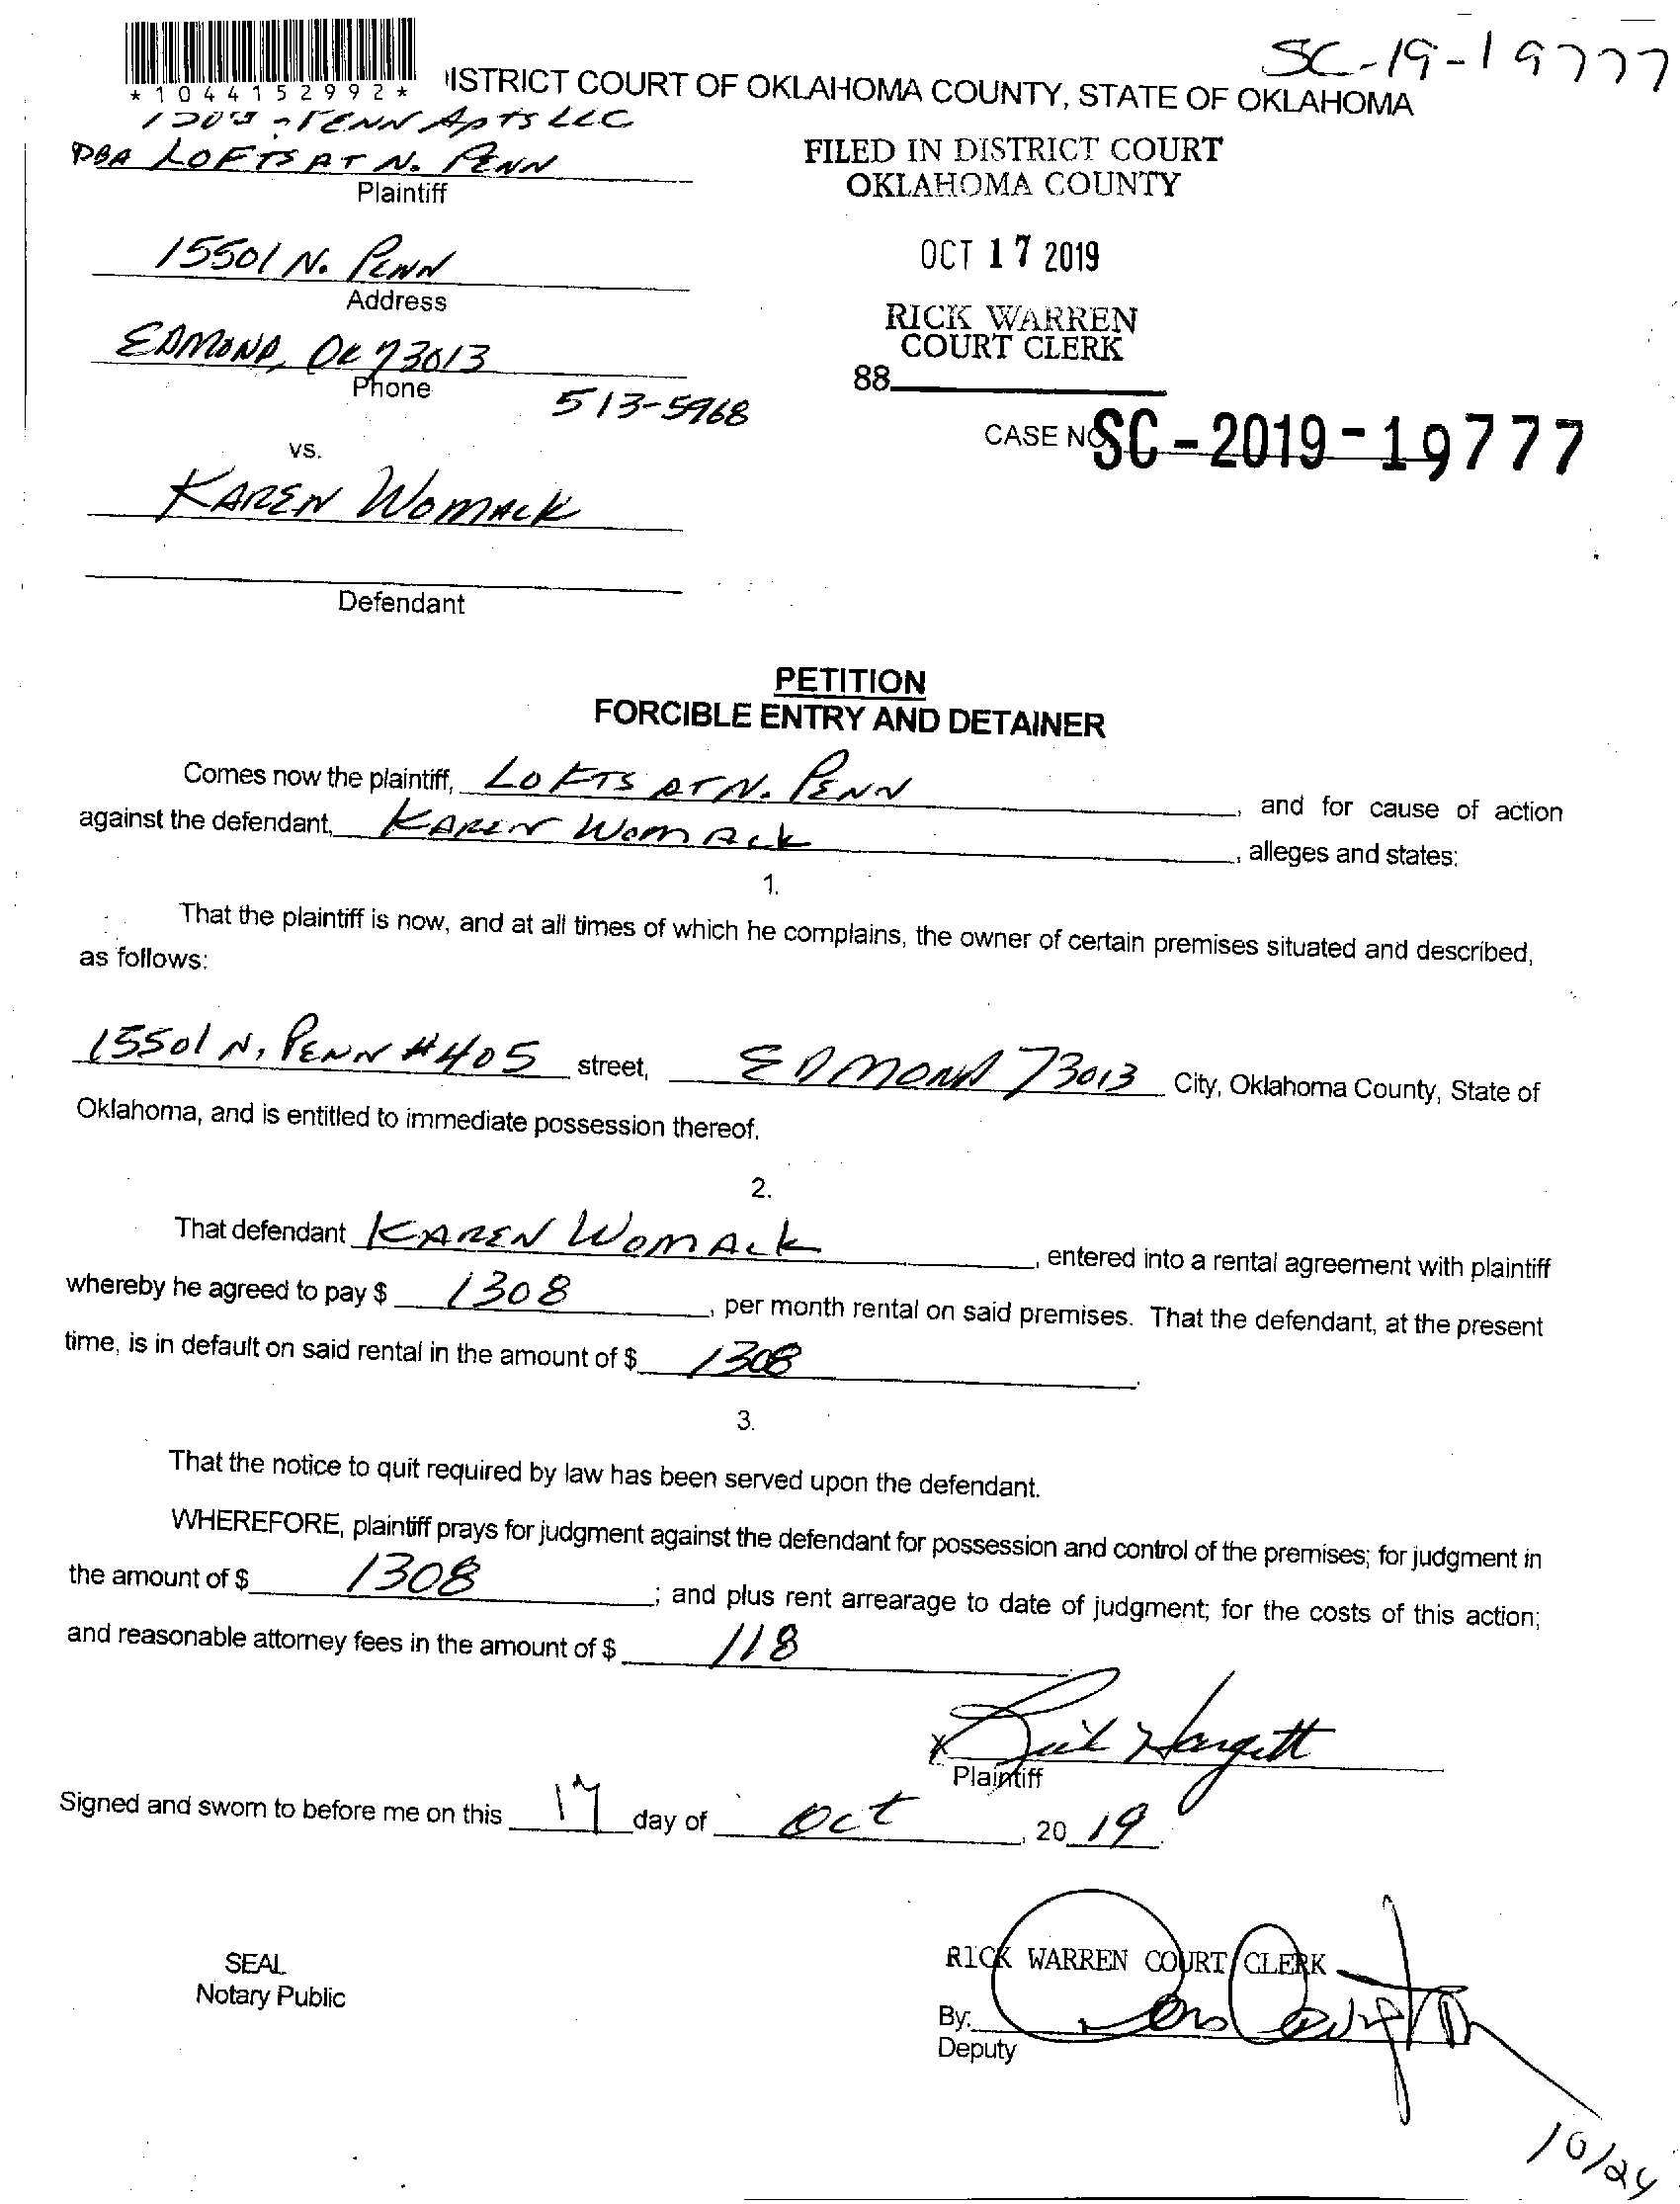 SC-19-19777
*1044152992*
ISTRICT COURT OF OKLAHOMA COUNTY, STATE OF OKLAHOMA
PENN APTS LLC
DBA LOFTS AT N. PENN
Plaintiff
FILED IN DISTRICT COURT
OKLAHOMA COUNTY
15501 N. PENN
Address
OCT 17 2019
EDMOND, OK 73013
Phone
513-5968
RICK WARREN
COURT CLERK
88
CASE NO SC-2019-19777
vs.
KAREN WOMACK
Defendant
PETITION
FORCIBLE ENTRY AND DETAINER
Comes now the plaintiff, LOFTS AT N. PENN, and for cause of action
against the defendant, KAREN WOMACK, alleges and states:
1.
That the plaintiff is now, and at all times of which he complains, the owner of certain premises situated and described,
as follows:
15501 N. PENN #405 street, EDMOND 73013 City, Oklahoma County, State of
Oklahoma, and is entitled to immediate possession thereof.
2.
That defendant KAREN WOMACK, entered into a rental agreement with plaintiff
whereby he agreed to pay $ 1308, per month rental on said premises. That the defendant, at the present
time, is in default on said rental in the amount of $ 1308.
3.
That the notice to quit required by law has been served upon the defendant.
WHEREFORE, plaintiff prays for judgment against the defendant for possession and control of the premises; for judgment in
the amount of $ 1308; and plus rent arrearage to date of judgment; for the costs of this action;
and reasonable attorney fees in the amount of $ 118
X Rick Hargett
Plaintiff
Signed and sworn to before me on this 17 day of Oct, 20 19.
SEAL
Notary Public
RICK WARREN COURT CLERK
By:
Deputy
10/24